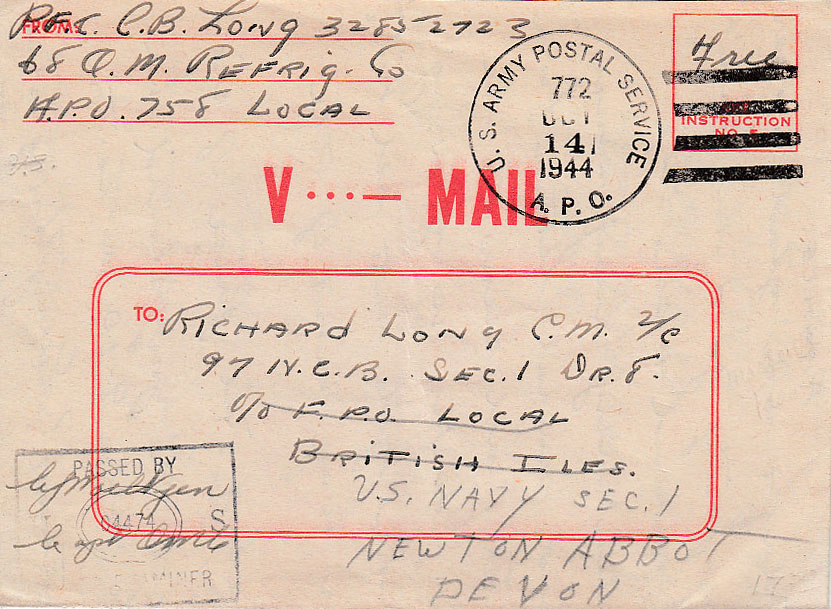 FROM:
PFC. C.B. LONG 32852723
68 Q.M. REFRIG. CO
A.P.O. 758 LOCAL
U.S. ARMY POSTAL SERVICE
772
OCT
14
1944
A.P.O.
Free
INSTRUCTION
NO.
V···— MAIL
TO: RICHARD LONG C.M. 2/C
97 N.C.B. SEC.1 DR.8.
c/o F.P.O. LOCAL
BRITISH ILES.
U.S. NAVY SEC. 1
NEWTON ABBOT
DEVON
PASSED BY
04474 S
EXAMINER